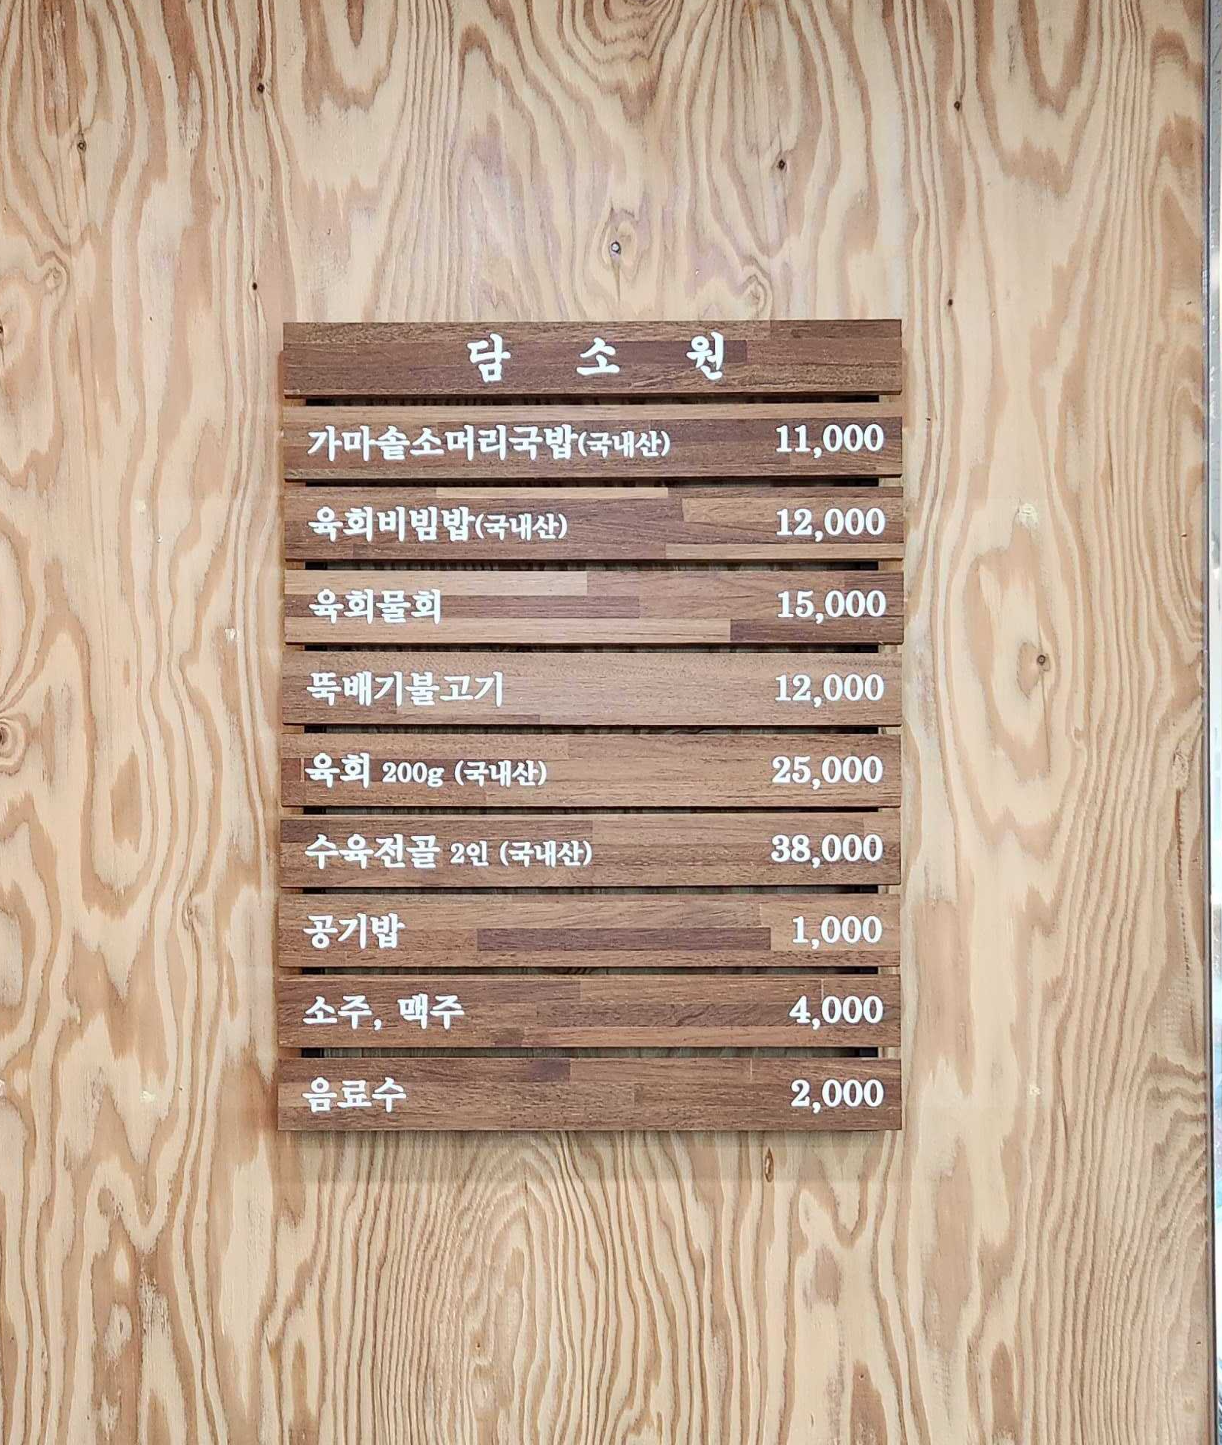 담 소 원
가마솥소머리국밥(국내산) 11,000
육회비빔밥(국내산) 12,000
육회물회 15,000
뚝배기불고기 12,000
육회 200g (국내산) 25,000
수육전골 2인 (국내산) 38,000
공기밥 1,000
소주, 맥주 4,000
음료수 2,000